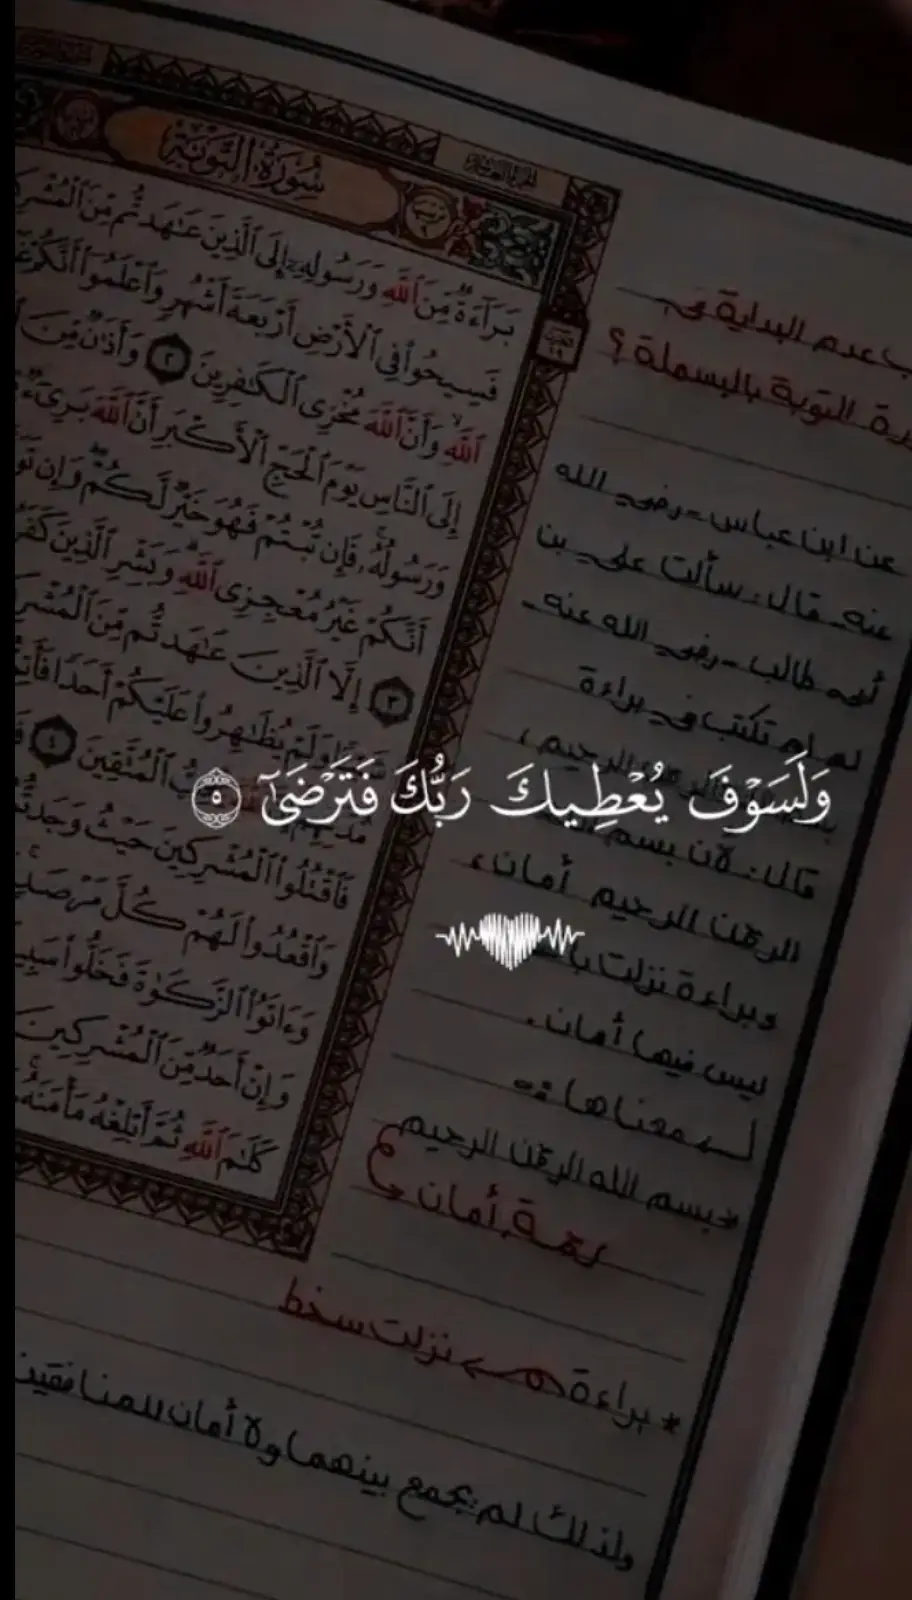 سُورَةُ التَّوْبَةِ
بَرَآءَةٌ مِّنَ ٱللَّهِ وَرَسُولِهِۦٓ إِلَى ٱلَّذِينَ عَٰهَدتُّم مِّنَ ٱلْمُشْرِكِ
فَسِيحُوا۟ فِى ٱلْأَرْضِ أَرْبَعَةَ أَشْهُرٍ وَٱعْلَمُوٓا۟ أَنَّكُمْ غَ
ٱللَّهِ وَأَنَّ ٱللَّهَ مُخْزِى ٱلْكَٰفِرِينَ ٢ وَأَذَٰنٌ مِّنَ
إِلَى ٱلنَّاسِ يَوْمَ ٱلْحَجِّ ٱلْأَكْبَرِ أَنَّ ٱللَّهَ بَرِىٓءٌ
وَرَسُولُهُۥ فَإِن تُبْتُمْ فَهُوَ خَيْرٌ لَّكُمْ وَإِن تَوَ
أَنَّكُمْ غَيْرُ مُعْجِزِى ٱللَّهِ وَبَشِّرِ ٱلَّذِينَ كَفَرُ
٣ إِلَّا ٱلَّذِينَ عَٰهَدتُّم مِّنَ ٱلْمُشْرِ
وَلَمْ يُظَٰهِرُوا۟ عَلَيْكُمْ أَحَدًا فَأَتِمُّ
مُدَّتِهِمْ ٱلْمُتَّقِينَ ٤
فَٱقْتُلُوا۟ ٱلْمُشْرِكِينَ حَيْثُ وَجَدتُّ
وَٱقْعُدُوا۟ لَهُمْ كُلَّ مَرْصَدٍ
وَءَاتَوُا۟ ٱلزَّكَوٰةَ فَخَلُّوا۟ سَبِي
وَإِنْ أَحَدٌ مِّنَ ٱلْمُشْرِكِينَ
كَلَٰمَ ٱللَّهِ ثُمَّ أَبْلِغْهُ مَأْمَنَهُۥ
عدم البداية في
التوبة بالبسملة؟
عن ابن عباس - رضي الله
عنه - قال: سألت علي بن
أبي طالب - رضي الله عنه -
لم لم تكتب في براءة
الرحيم؟
قال: لأن بسم
الرحمن الرحيم أمان،
وبراءة نزلت
ليس فيها أمان.
معناها:
بسم الله الرحمن الرحيم
رحمة، أمان
* براءة نزلت سخط
ولذلك لم يجمع بينهما ولا أمان للمنافقين
وَلَسَوْفَ يُعْطِيكَ رَبُّكَ فَتَرْضَىٰٓ ٥